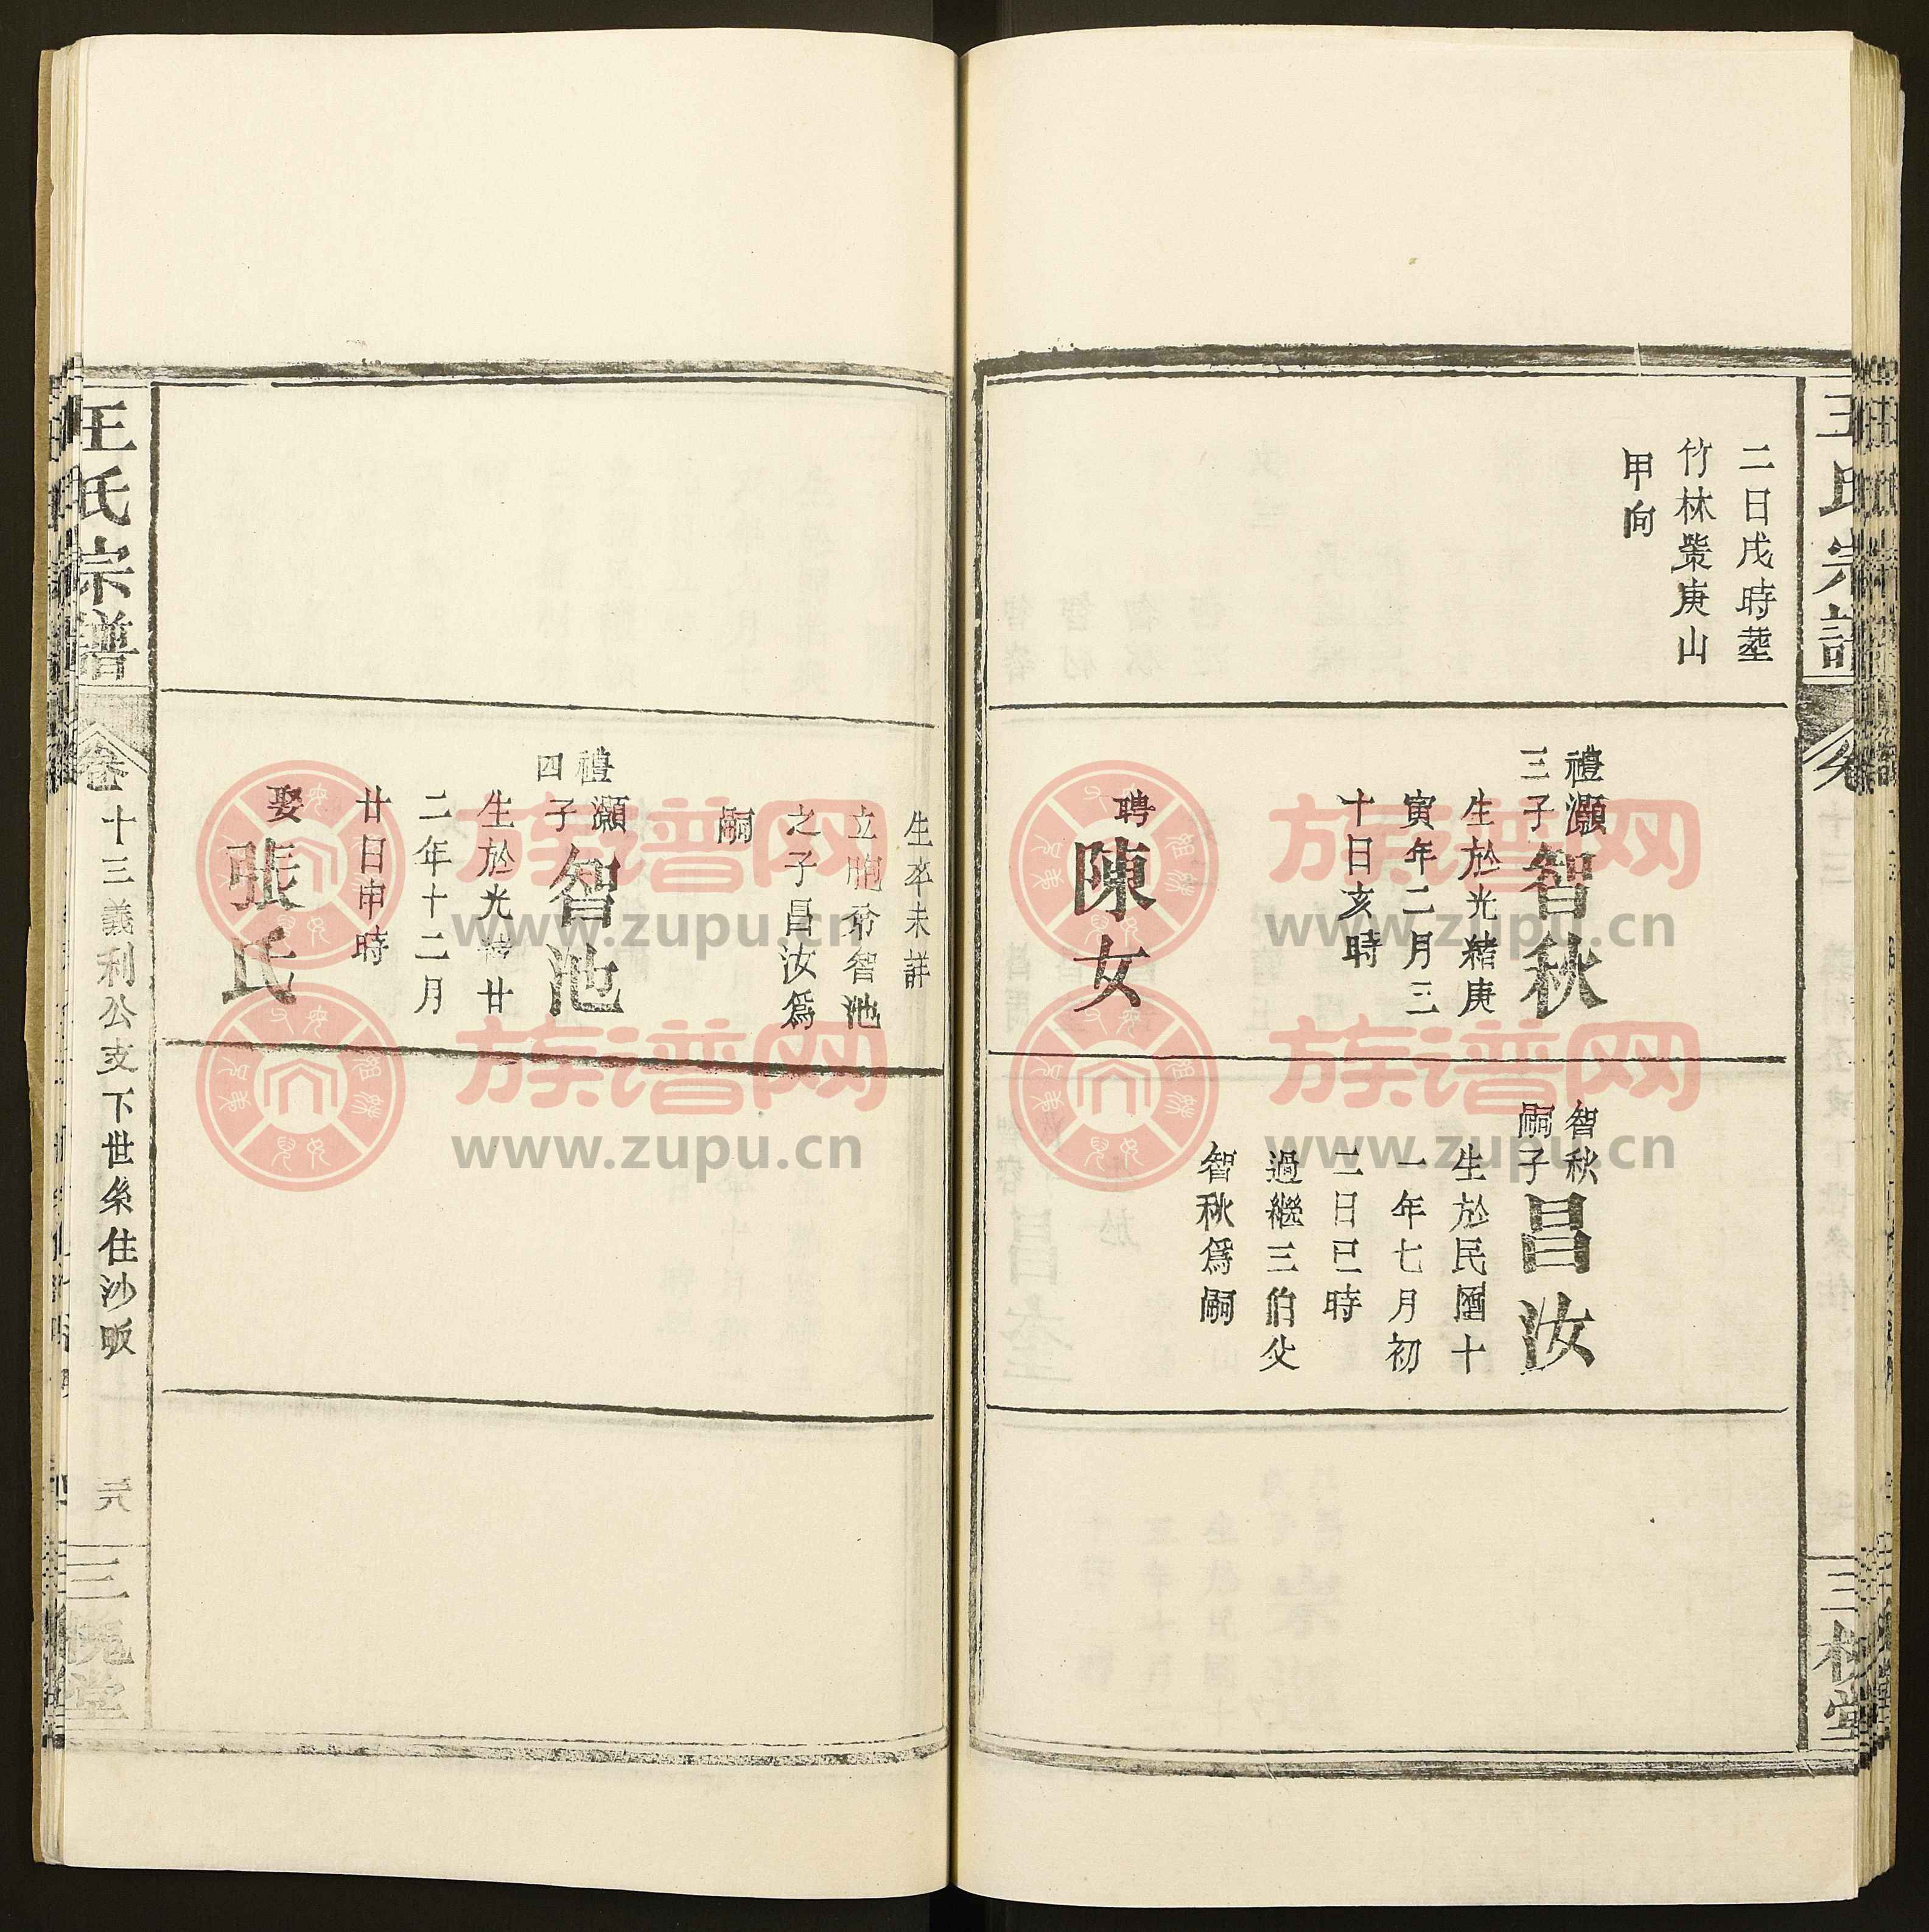 二日戌時塟
竹林塋庚山
甲向
禮灝
三子
智秋
生於光緒庚
寅年二月三
十日亥時
聘
陳女
智秋
嗣子
昌汝
生於民國十
一年七月初
二日巳時
過繼三伯父
智秋爲嗣
三槐堂
生卒未詳
立胞弟智池
之子昌汝爲
嗣
禮灝
四子
智池
生於光緒廿
二年十二月
廿日申時
娶
張氏
王氏宗譜
卷十三義利公支下世系住沙畈
三槐堂
族谱网
www.zupu.cn
族谱网
www.zupu.cn
族谱网
www.zupu.cn
族谱网
www.zupu.cn